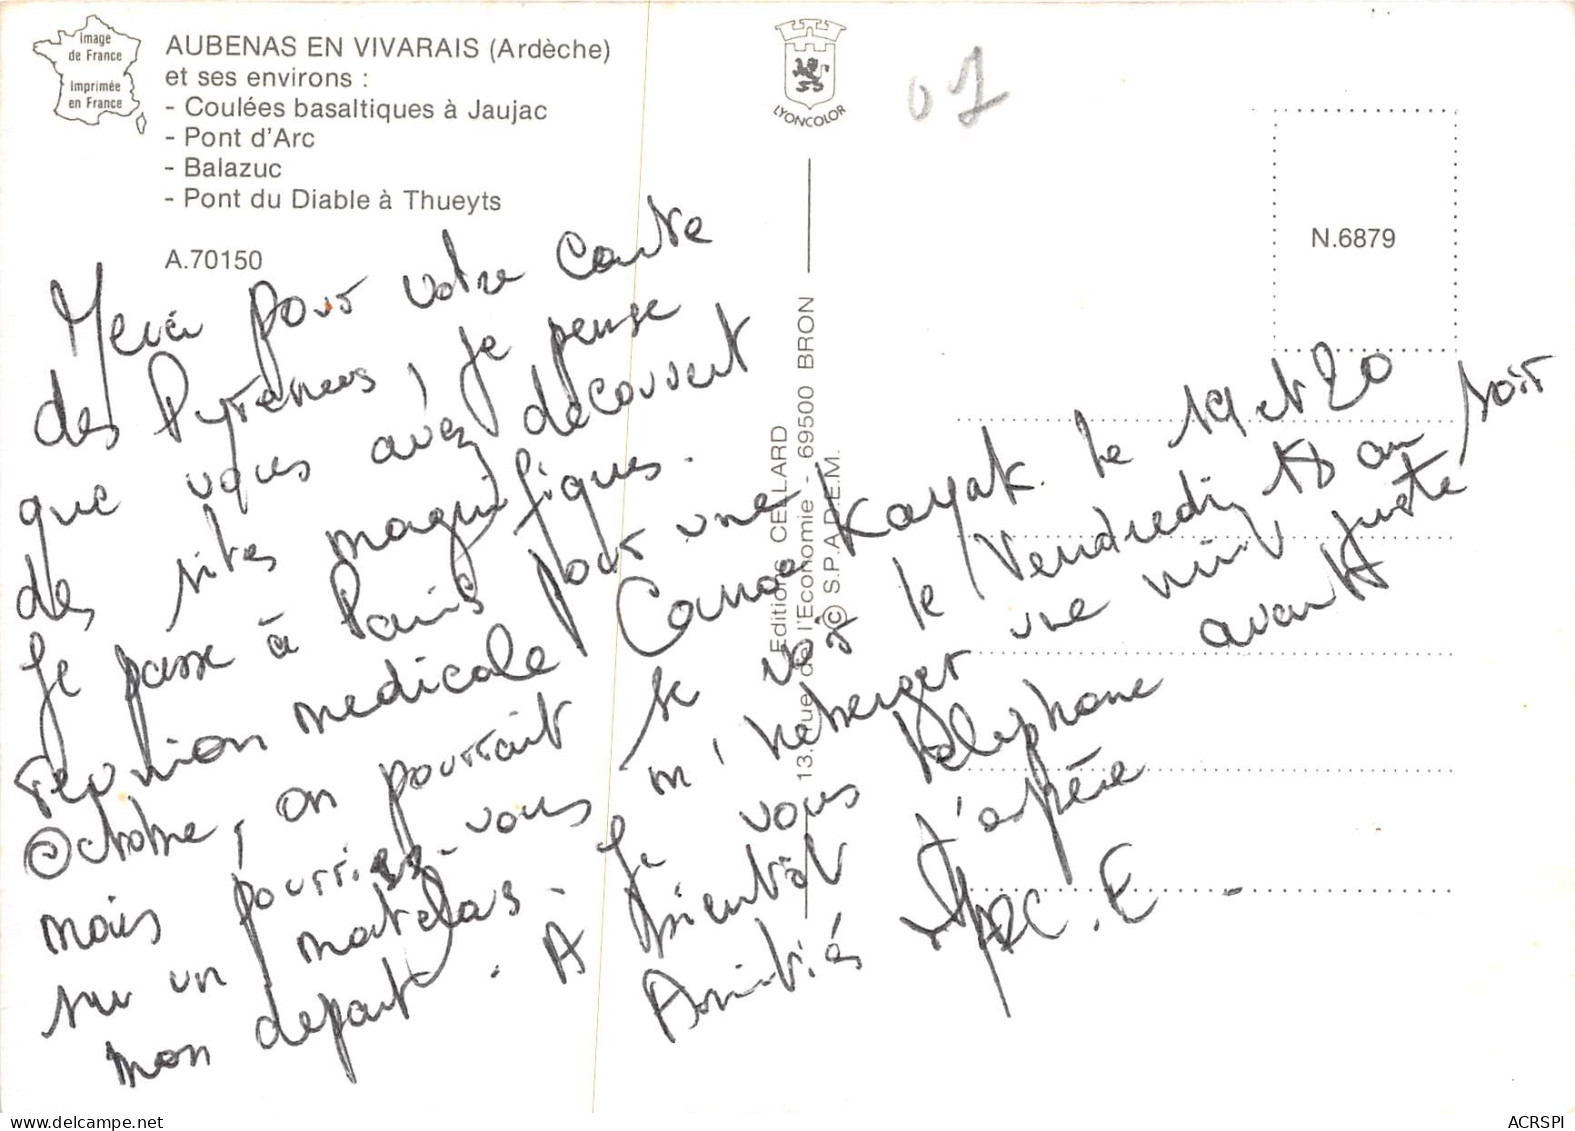 Image
de France
Imprimée
en France
AUBENAS EN VIVARAIS (Ardèche)
et ses environs :
- Coulées basaltiques à Jaujac
- Pont d'Arc
- Balazuc
- Pont du Diable à Thueyts
A.70150
LYONCOLOR
07
N.6879
Editions CELLARD
13. rue de l'Economie - 69500 BRON
© S.P.A.D.E.M.
Merci pour votre carte
des Pyrénées, je pense
que vous avez découvert
des sites magnifiques.
Je passe à Paris pour une
reunion medicale Canoe Kayak le 19 et 20
Octobre, on pourrait se voir le Vendredi 18 au soir
mais pourriez-vous m'heberger une nuit juste
sur un matelas. Je vous telephone avant
mon depart. A bientôt j'espère
Amitiés MARC.E.
ACRSPI